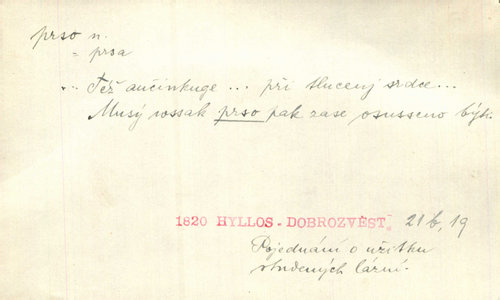 prso n.
= prsa
... Též aučinkuge ... při tlučenj srdce ...
Musý wossak prso pak zase osusseno býti.
1820 HYLLOS-DOBROZVĚST, 21b, 19
Pojednání o užitku
studených lázní.